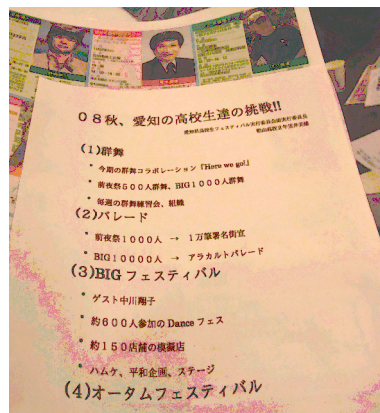 08秋、愛知の高校生達の挑戦!!
愛知県高校生フェスティバル実行委員会
(1)群舞
・今期の群舞コラボレーション『Here we go!』
・前夜祭500人群舞、BIG1000人群舞
・毎週の群舞練習会、組織
(2)パレード
・前夜祭1000人 → 1万筆署名街宣
・BIG10000人 → アラカルトパレード
(3)BIGフェスティバル
・ゲスト中川翔子
・約600人参加のDanceフェス
・約150店舗の模擬店
・ハムケ、平和企画、ステージ
(4)オータムフェスティバル